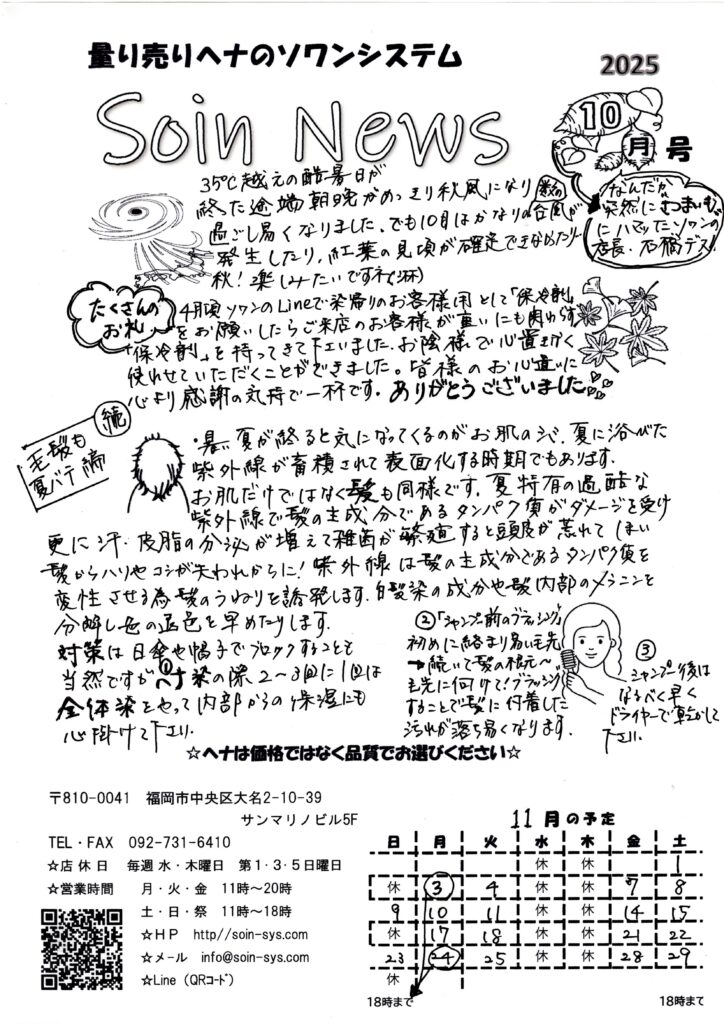 量り売りヘナのソワンシステム
2025
Soin News
10
月号
35℃越えの酷暑日が
終た途端朝晩がめっきり秋風になり
過ごし易くなりました、でも10月はかなりの数の台風が
発生したり、紅葉の見頃が確定できなかったり
秋!楽しみたいですネ(淋)
なんだか
突然にむつまいも
にハマッたソワンの
店長、石橋デス!
たくさんの
お礼
4月頃ソワンのLineで染帰りのお客様用として「保冷剤」
をお願いしたらご来店のお客様が重いにも関わらず
「保冷剤」を持ってきて下さいました。お陰様で心置きなく
使わせていただくことができました。皆様のお心遣いに
心より感謝の気持で一杯です。ありがとうございました
続
毛髪も
夏バテ
・暑い夏が終ると気になってくるのがお肌のシミ、夏に浴びた
紫外線が蓄積されて表面化する時期でもあります。
お肌だけではなく髪も同様です。夏特有の過酷な
紫外線で髪の主成分であるタンパク質がダメージを受け
更に汗、皮脂の分泌が増えて雑菌が繁殖すると頭皮が荒れて
髪からハリやコシが失われからに!紫外線は髪の主成分であるタンパク質を
変性させる為髪のうねりを誘発します。白髪染の成分や髪内部のメラニンを
分解し色の退色を早めたりします。
対策は日傘や帽子でブロックすることも
当然ですが①ヘナ染の際2〜3回に1回は
全体染をやって内部からの保湿にも
心掛けて下さい。
②「シャンプー前のブラッシング」
初めに絡まり易い毛先
→続いて髪の根元〜
毛先に向けて!ブラッシング
することで髪に付着した
汚れが落ち易くなります。
③
シャンプー後は
なるべく早く
ドライヤーで乾かして
下さい。
☆ヘナは価格ではなく品質でお選びください☆
〒810-0041 福岡市中央区大名2-10-39
サンマリノビル5F
TEL・FAX 092-731-6410
☆店休日 毎週水・木曜日 第1・3・5日曜日
☆営業時間 月・火・金 11時〜20時
土・日・祭 11時〜18時
☆HP http//soin-sys.com
☆メール info@soin-sys.com
☆Line (QRコード)
11月の予定
日 月 火 水 木 金 土
休 休 1
休 3 4 休 休 7 8
9 10 11 休 休 14 15
休 17 18 休 休 21 22
23 24 25 休 休 28 29
休
18時まで 18時まで